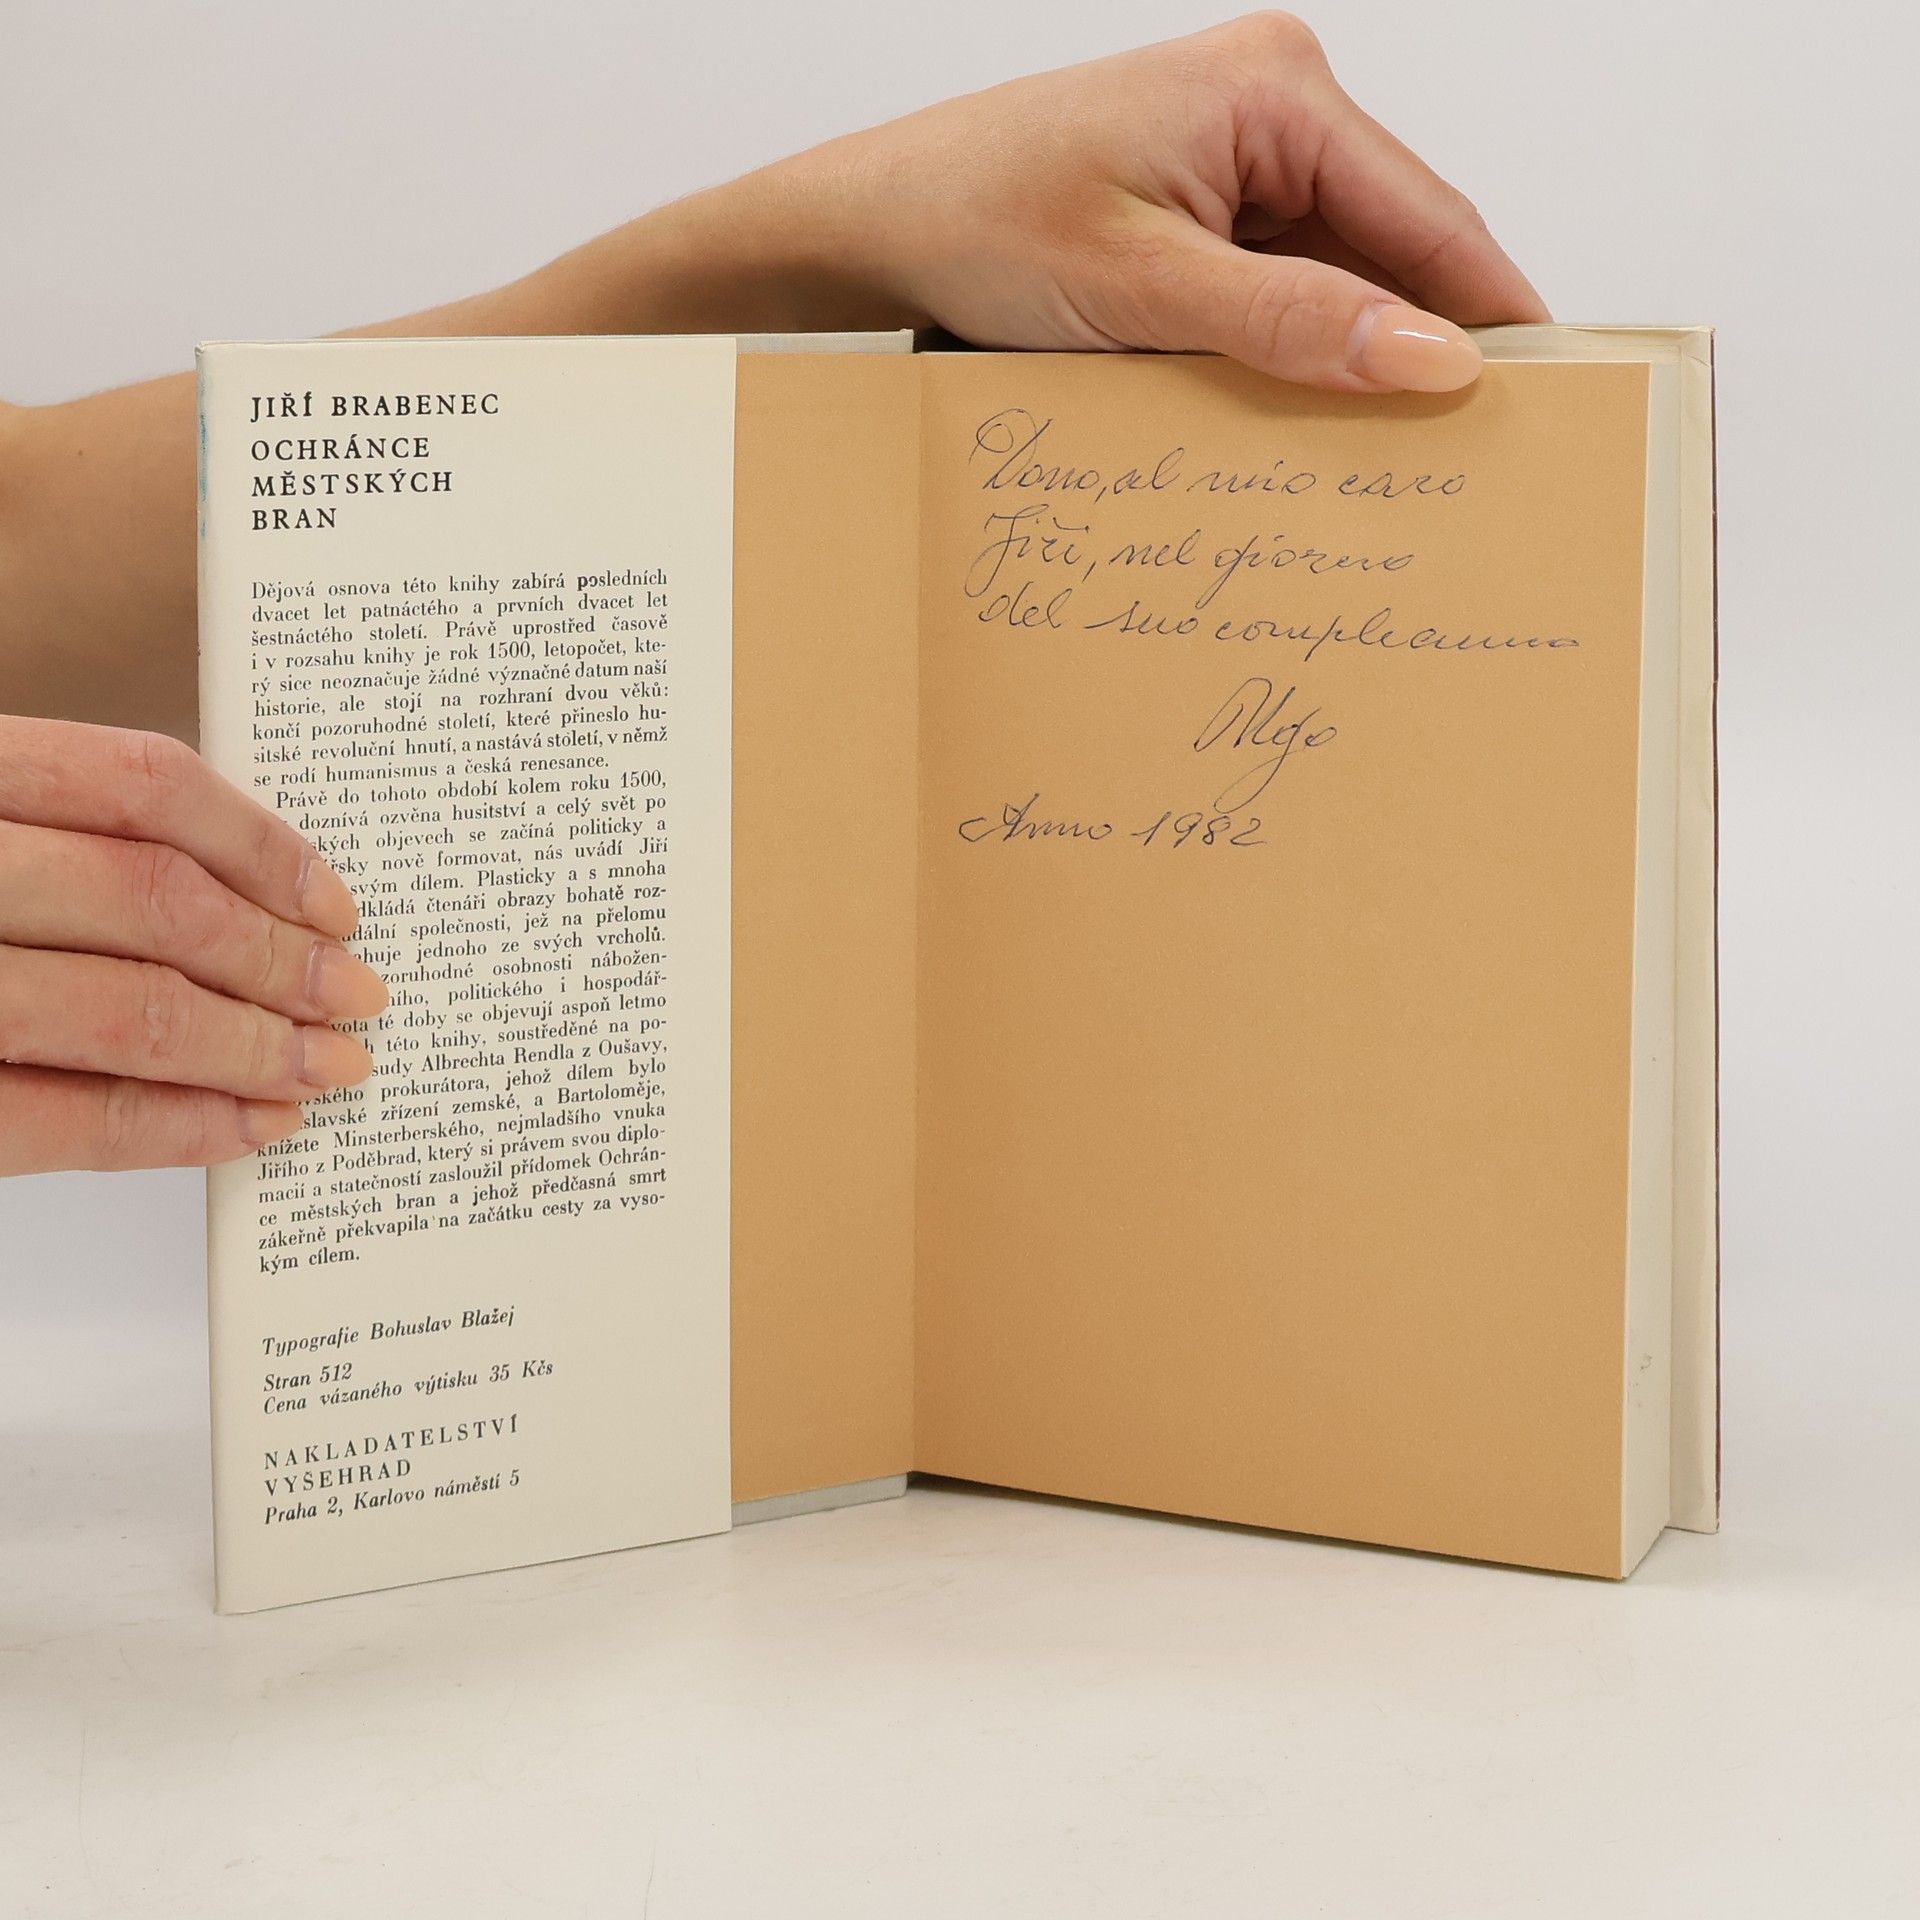 JIŘÍ BRABENEC
OCHRÁNCE
MĚSTSKÝCH
BRAN
Dějová osnova této knihy zabírá posledních
dvacet let patnáctého a prvních dvacet let
šestnáctého století. Právě uprostřed časově
i v rozsahu knihy je rok 1500, letopočet, kte-
rý sice neoznačuje žádné význačné datum naší
historie, ale stojí na rozhraní dvou věků:
končí pozoruhodné století, které přineslo hu-
sitské revoluční hnutí, a nastává století, v němž
se rodí humanismus a česká renesance.
Právě do tohoto období kolem roku 1500,
doznívá ozvěna husitství a celý svět po
ských objevech se začíná politicky a
řsky nově formovat, nás uvádí Jiří
svým dílem. Plasticky a s mnoha
dkládá čtenáři obrazy bohatě roz-
udální společnosti, jež na přelomu
ahuje jednoho ze svých vrcholů.
zoruhodné osobnosti nábožen-
ního, politického i hospodář-
vota té doby se objevují aspoň letmo
h této knihy, soustředěné na po-
sudy Albrechta Rendla z Oušavy,
ovského prokurátora, jehož dílem bylo
slavské zřízení zemské, a Bartoloměje,
knížete Minsterberského, nejmladšího vnuka
Jiřího z Poděbrad, který si právem svou diplo-
macií a statečností zasloužil přídomek Ochrán-
ce městských bran a jehož předčasná smrt
zákeřně překvapila na začátku cesty za vyso-
kým cílem.
Typografie Bohuslav Blažej
Stran 512
Cena vázaného výtisku 35 Kčs
NAKLADATELSTVÍ
VYŠEHRAD
Praha 2, Karlovo náměstí 5
Dono, al mio caro
Jiří, nel giorno
del suo compleanno
Olga
Anno 1982